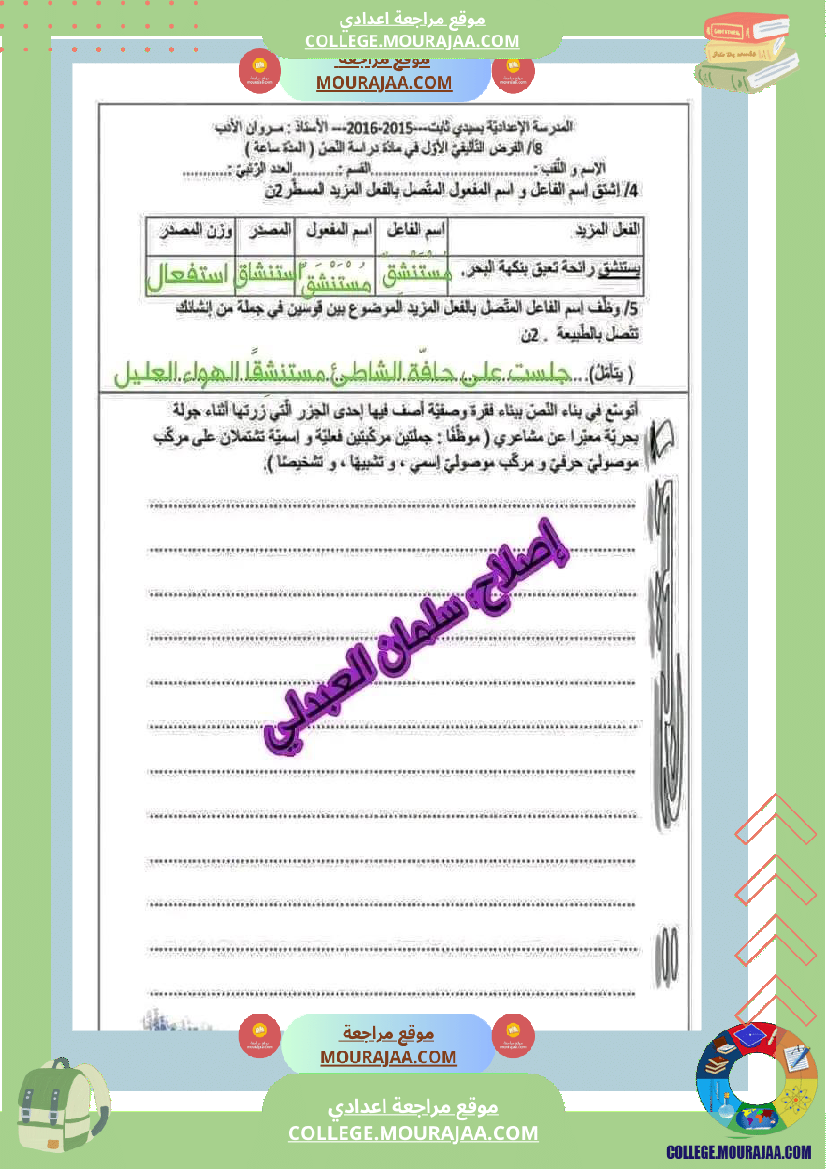 موقع مراجعة اعدادي
COLLEGE.MOURAJAA.COM
موقع مراجعة
MOURAJAA.COM
المدرسة الإعداديّة بسيدي ثابت---2015-2016--- الأستاذ : مروان الأدب
8/ الفرض التّأليفيّ الأوّل في مادّة دراسة النّصّ ( المدّة ساعة )
الإسم و اللّقب :......................................القسم :...........العدد الرّتبيّ :...........
4/ إشتقّ إسم الفاعل و اسم المفعول المتّصل بالفعل المزيد المسطّر2ن
الفعل المزيد اسم الفاعل اسم المفعول المصدر وزن المصدر
يستنشق رائحة تعبق بنكهة البحر. مُسْتَنْشِق مُسْتَنْشَقٌ استنشاق استفعال
5/ وظّف إسم الفاعل المتّصل بالفعل المزيد الموضوع بين قوسين في جملة من إنشائك
تتّصل بالطّبيعة . 2ن
( يتأمّل)....جلست على حافّة الشاطئ مستنشقًا الهواء العليل
أتوسّع في بناء النّصّ ببناء فقرة وصفيّة أصف فيها إحدى الجزر الّتي زرتها أثناء جولة
بحريّة معبّرا عن مشاعري ( موظّفًا : جملتين مركّبتين فعليّة و إسميّة تشتملان على مركّب
موصوليّ حرفيّ و مركّب موصوليّ إسمي ، و تشبيهًا ، و تشخيصًا ).
إصلاح: سلمان العبدلي
موقع مراجعة
MOURAJAA.COM
موقع مراجعة اعدادي
COLLEGE.MOURAJAA.COM
COLLEGE.MOURAJAA.COM